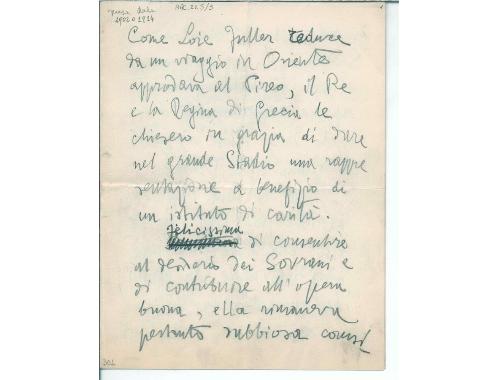 senza data
1902 o 1914
ARC.22.5/3
Come Loïe Fuller reduce
da un viaggio in Oriente
approdava al Pireo, il Re
e la Regina di Grecia le
chiesero in grazia di dare
nel grande Stadio una rappre
sentazione a benefizio di
un istituto di carità.
felicissima
di consentire
al desiderio dei Sovrani e
di contribuire all'opera
buona, ella rimaneva
pertanto dubbiosa
301